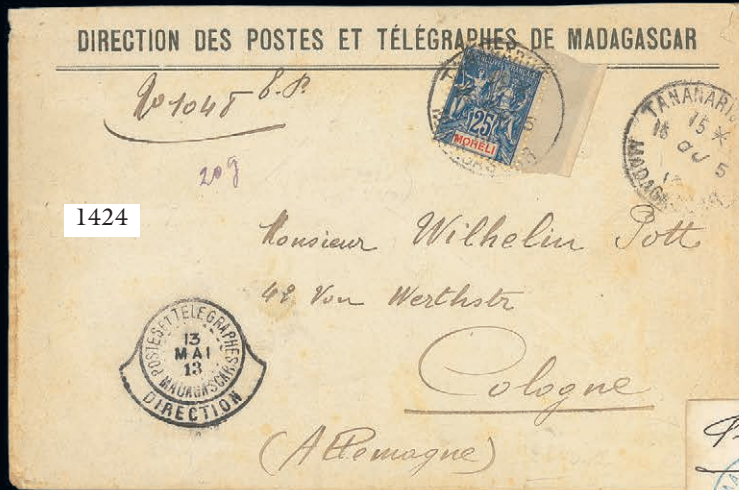 DIRECTION DES POSTES ET TÉLÉGRAPHES DE MADAGASCAR
No 1045 E.P.
25
MOHÉLI
TANANARIVE
15 *
5
MADAGASCAR
20g
1424
Monsieur Wilhelm Pott
42 Von Werthstr
Cologne
(Allemagne)
POSTES ET TELEGRAPHES
13
MAI
13
MADAGASCAR
DIRECTION